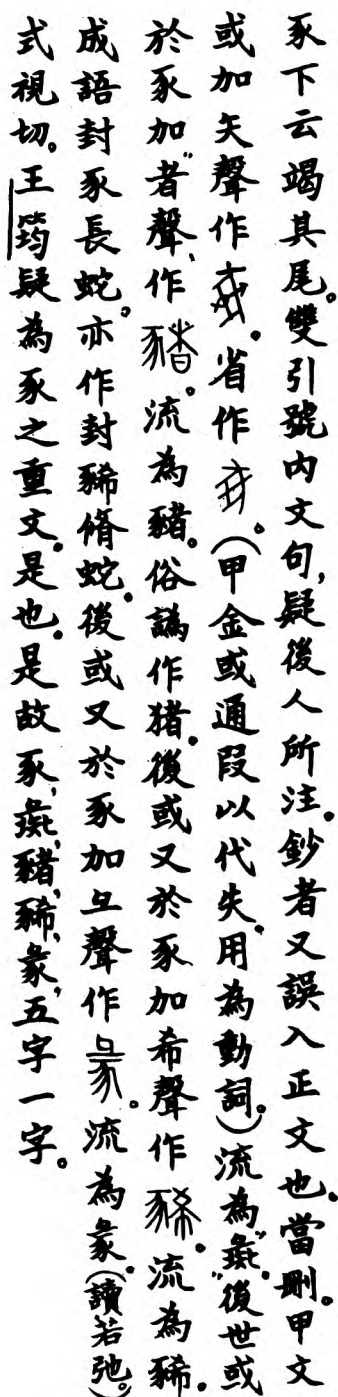 豕下云竭其尾。雙引號內文句，疑後人所注。鈔者又誤入正文也。當刪。甲文
或加矢聲作。省作。（甲金或通叚以代失，用為動詞。）流為“彘”。後世或
於豕加“者”聲，作。流為豬。俗譌作猪。後或又於豕加希聲作。流為豨。
成語封豕長蛇。亦作封豨脩蛇。後或又於豕加彑聲作。流為彖（讀若弛。）
式視切。王筠疑為豕之重文。是也。是故豕、彘、豬、豨、彖，五字一字。